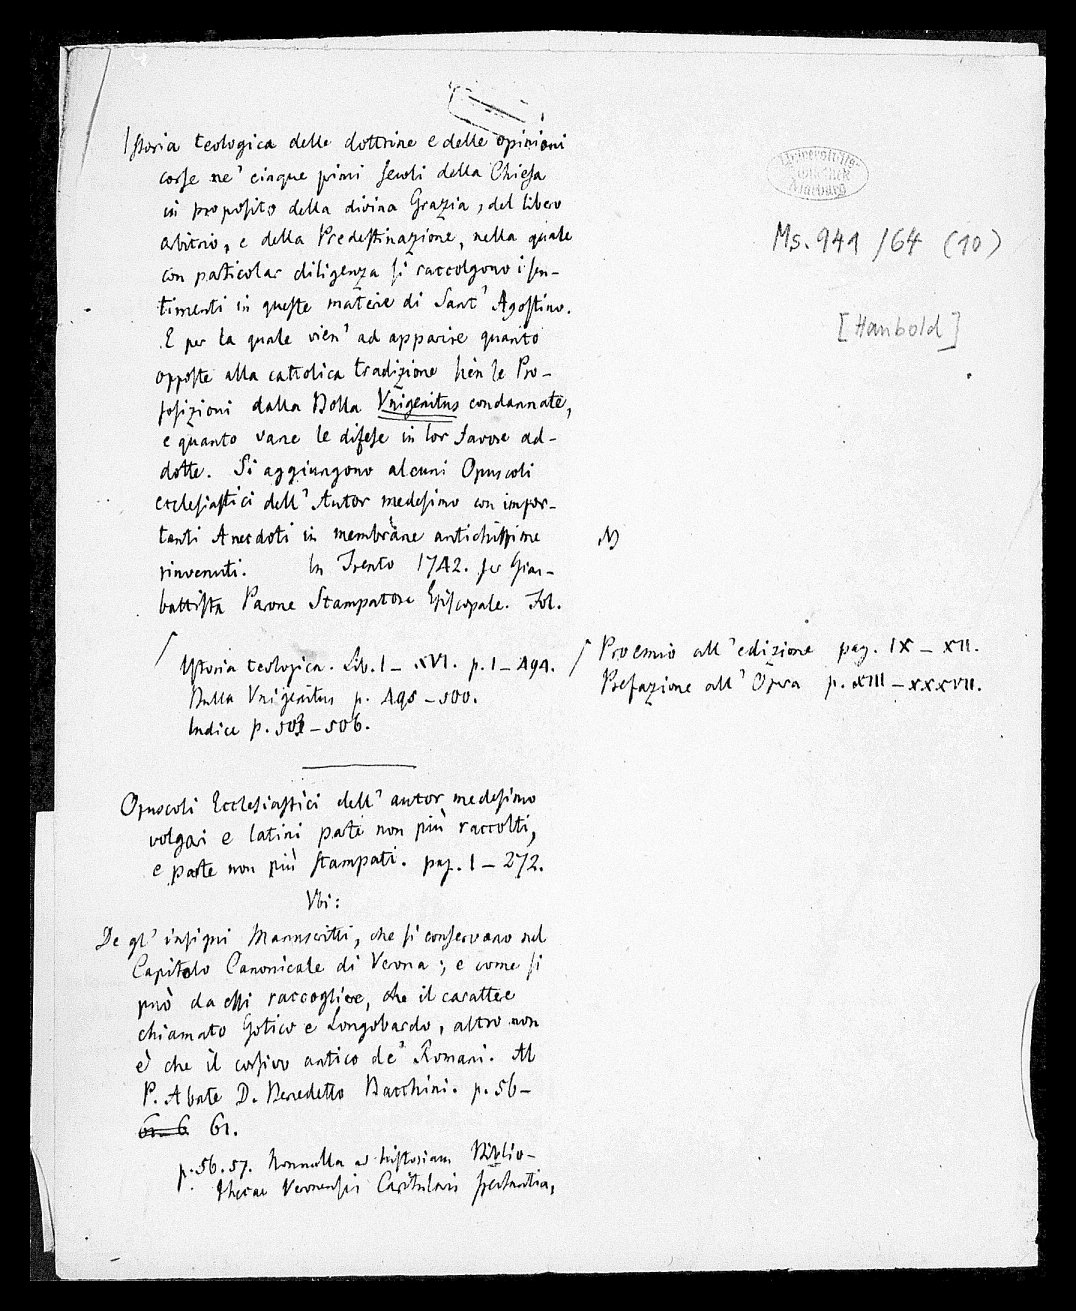 Istoria teologica delle dottrine e delle opinioni
corse ne' cinque primi secoli della Chiesa
in proposito della divina Grazia, del libero
arbitrio, e della Predestinazione, nella quale
con particolar diligenza si raccolgono i sen-
timenti in queste materie di Sant' Agostino.
E per la quale vien' ad apparire quanto
opposte alla cattolica tradizione sien le Pro-
posizioni dalla Bolla Vnigenitus condannate,
e quanto vane le difese in lor favore ad-
dotte. Si aggiungono alcuni Opuscoli
ecclesiastici dell' Autor medesimo con impor-
tanti Anecdoti in membrane antichissime
rinvenuti. In Trento 1742. per Gian-
battista Parone Stampatore Episcopale. Fol.
Istoria teologica. Lib. I – XVI. p. 1 – 494.
Bulla Vnigenitus p. 495 – 500.
Indice p. 503 – 506.
Opuscoli Ecclesiastici dell' autor medesimo
volgari e latini parte non più raccolti,
e parte non più stampati. pag. 1 – 272.
Vbi:
De gl' insigni Manuscritti, che si conservano nel
Capitolo Canonicale di Verona; e come si
può da essi raccogliere, che il carattere
chiamato Gotico e Longobardo, altro non
è che il corsivo antico de' Romani. Al
P. Abate D. Benedetto Bacchini. p. 56 –
61.
p. 56. 57. Nonnulla ad historiam Biblio-
thecae Veronensis Capitularis spectantia,
Universitäts-
Bibliothek
Marburg
Ms. 941 / 64 (10)
[Hanbold]
Proemio all' edizione pag. IX – XII.
Prefazione all' Opera p. XIII – XXXVII.